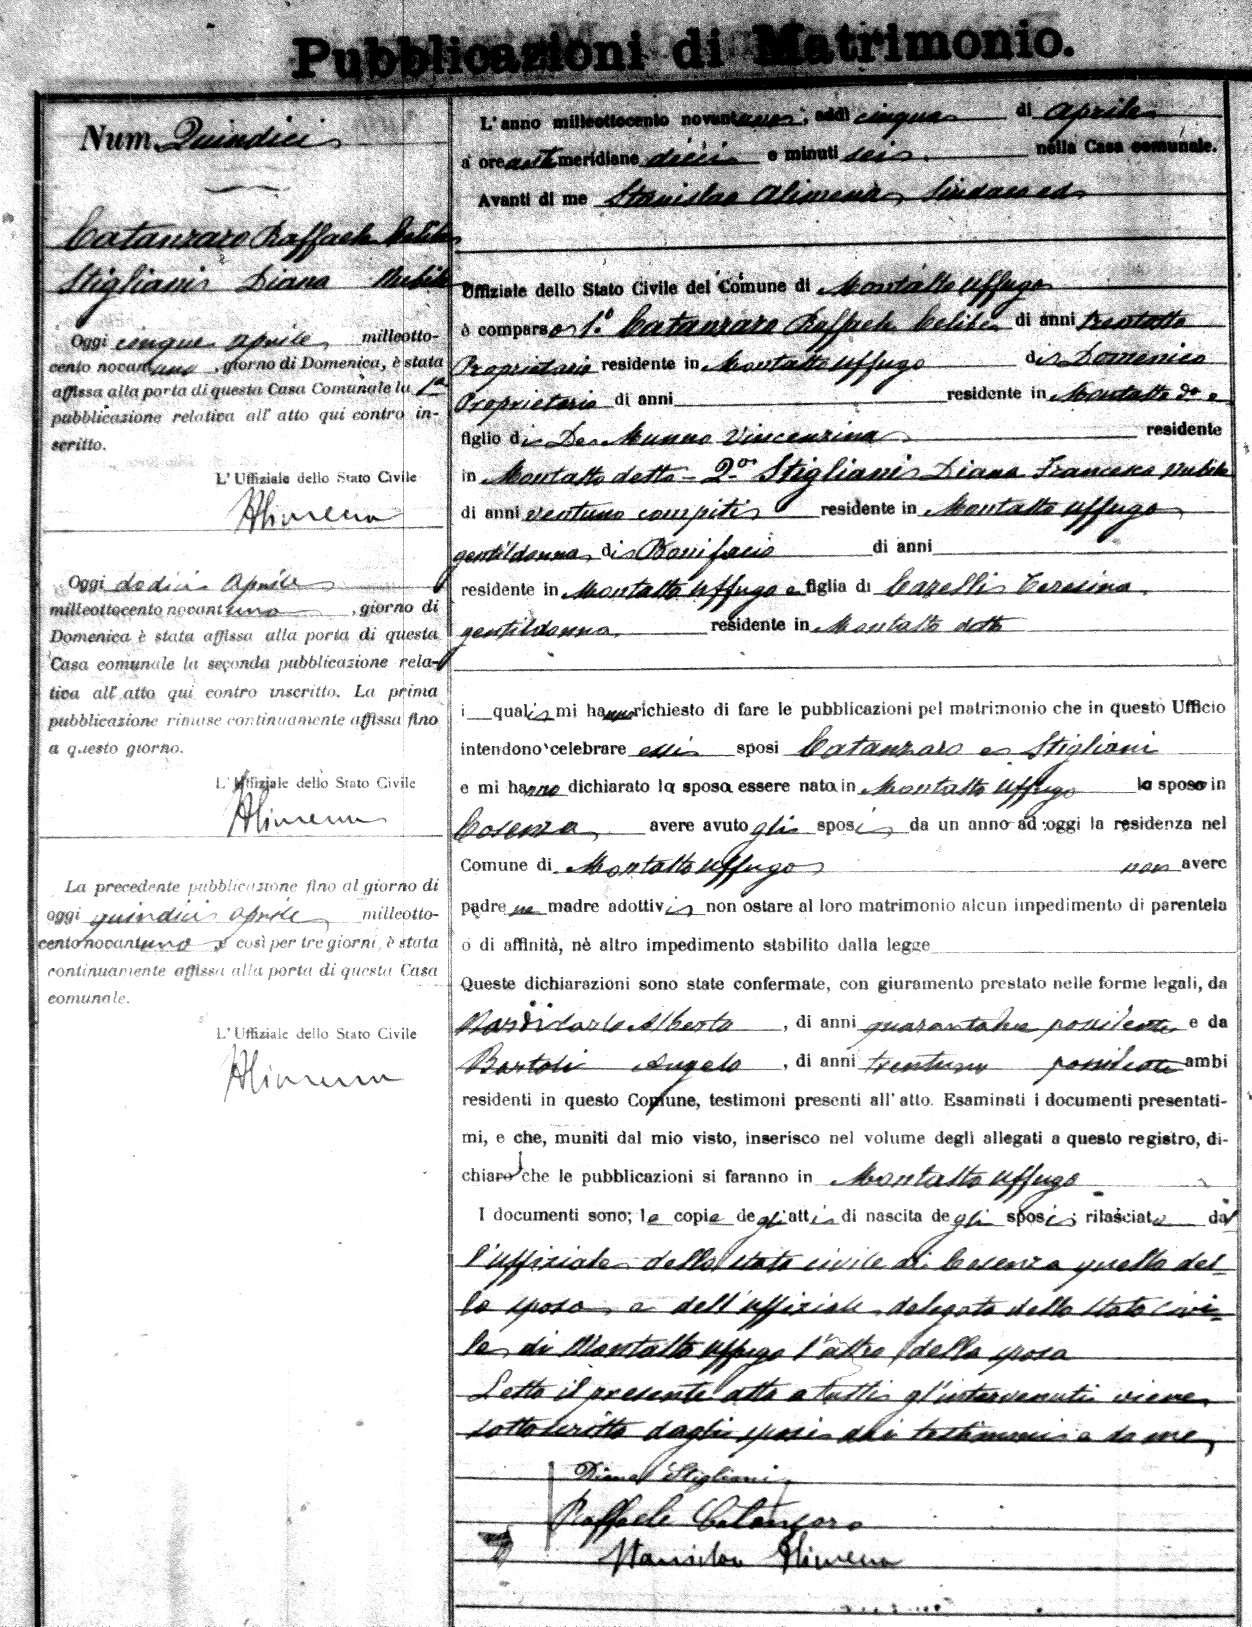 Pubblicazioni di Matrimonio.
Num. Quindici
Catanzaro Raffaele Celibe
Stigliani Diana Nubile
Oggi cinque aprile milleotto-
cento novantuno, giorno di Domenica, è stata
affissa alla porta di questa Casa Comunale la 1a
pubblicazione relativa all' atto qui contro in-
scritto.
L' Uffiziale dello Stato Civile
Alimena
Oggi dodici Aprile
milleottocento novantuno, giorno di
Domenica è stata affissa alla porta di questa
Casa comunale la seconda pubblicazione rela-
tiva all' atto qui contro inscritto. La prima
pubblicazione rimase continuamente affissa fino
a questo giorno.
L' Uffiziale dello Stato Civile
Alimena
La precedente pubblicazione fino al giorno di
oggi quindici aprile milleotto-
cento novantuno e così per tre giorni, è stata
continuamente affissa alla porta di questa Casa
comunale.
L' Uffiziale dello Stato Civile
Alimena
L' anno milleottocento novantuno, addì cinque di Aprile
a ore antemeridiane dieci e minuti sei nella Casa comunale.
Avanti di me Stanislao Alimena Sindaco ed
Uffiziale dello Stato Civile del Comune di Montalto Uffugo
è comparso 1.° Catanzaro Raffaele Celibe di anni trentotto
Proprietario residente in Montalto Uffugo di Domenico
Proprietario di anni residente in Montalto do e
figlio di De Munno Vincenzina residente
in Montalto detto - 2.° Stigliani Diana Francesca nubile
di anni ventuno compiti residente in Montalto Uffugo
gentildonna di Bonifacio di anni
residente in Montalto Uffugo e figlia di Caselli Teresina
gentildonna residente in Montalto detto
i quali mi hanno richiesto di fare le pubblicazioni pel matrimonio che in questo Ufficio
intendono celebrare essi sposi Catanzaro e Stigliani
e mi hanno dichiarato la sposa essere nata in Montalto Uffugo lo sposo in
Cosenza avere avuto gli sposi da un anno ad oggi la residenza nel
Comune di Montalto Uffugo non avere
padre ne madre adottivi non ostare al loro matrimonio alcun impedimento di parentela
o di affinità, nè altro impedimento stabilito dalla legge
Queste dichiarazioni sono state confermate, con giuramento prestato nelle forme legali, da
Carlo Alberto, di anni quarantadue possidente e da
Bartoli Angelo, di anni trentuno possidente ambi
residenti in questo Comune, testimoni presenti all' atto. Esaminati i documenti presentati-
mi, e che, muniti dal mio visto, inserisco nel volume degli allegati a questo registro, di-
chiaro che le pubblicazioni si faranno in Montalto Uffugo
I documenti sono; le copie degli atti di nascita degli sposi; rilasciate dal
l'uffiziale dello stato civile di Cosenza quello del-
lo sposo, e dell'uffiziale delegato dello stato civi-
le di Montalto Uffugo l'altro della sposa
Letto il presente atto a tutti gl'intervenuti viene
sottoscritto dagli sposi dai testimoni e da me
Diana Stigliani
Raffaele Catanzaro
Stanislao Alimena